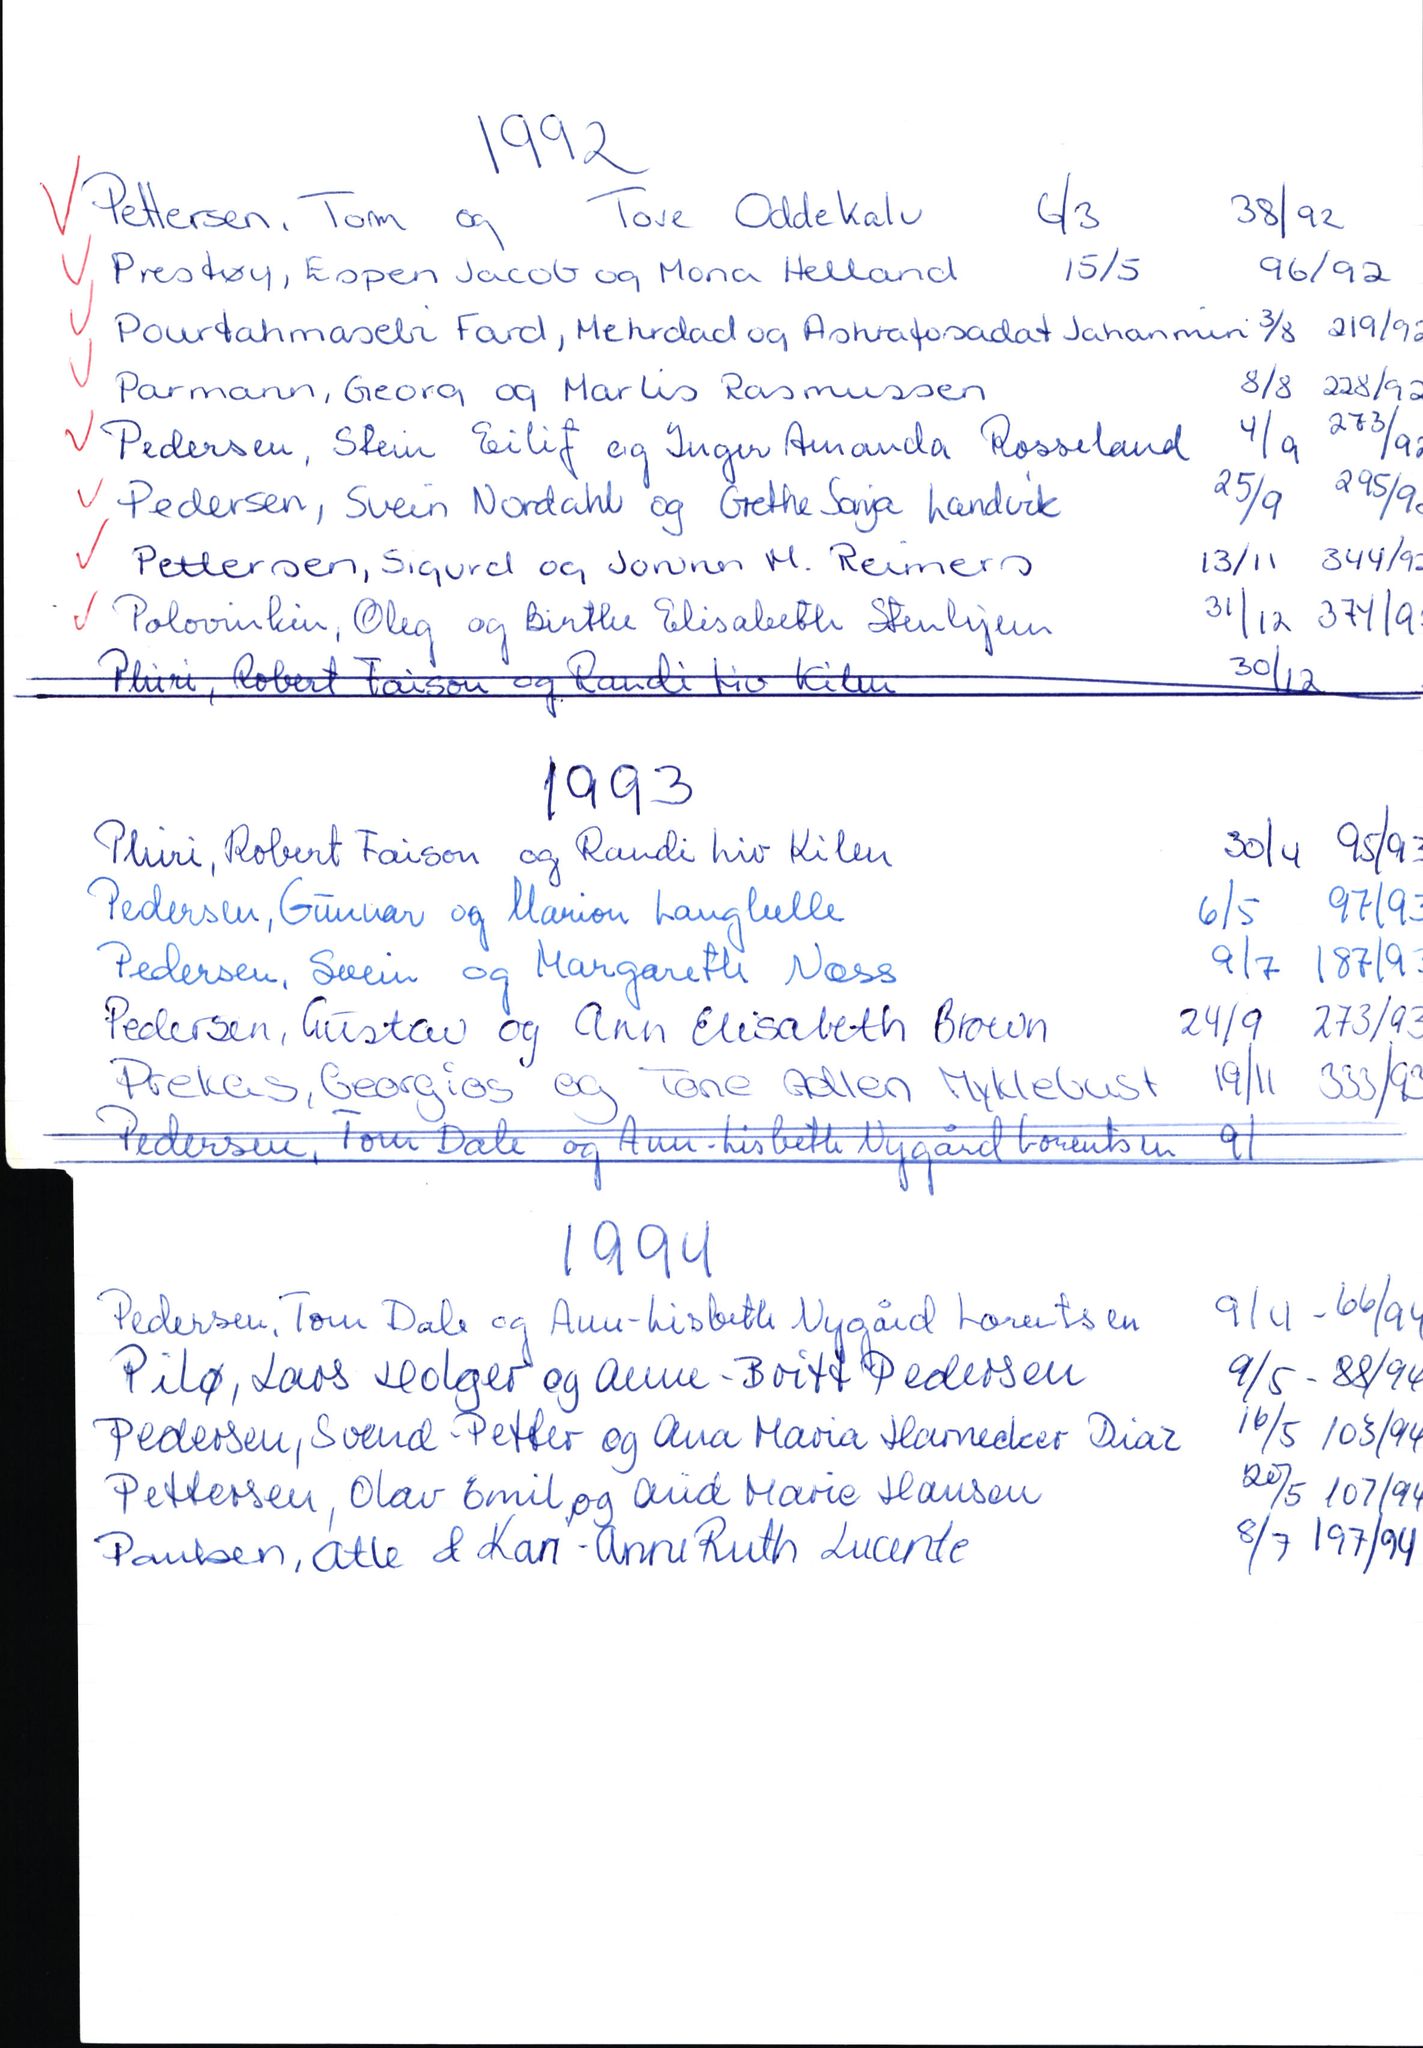 1992
Pettersen, Tom og Tove Oddekalv 6/3 38/92
Prestøy, Espen Jacob og Mona Helland 15/5 96/92
Pourtahmasebi Fard, Mehrdad og Ashrafosadat Jahanmiri 3/8 219/92
Parmann, Georg og Marlis Rasmussen 8/8 228/92
Pedersen, Stein Eilif og Inger Amanda Rosseland 4/9 273/92
Pedersen, Svein Nordahl og Grethe Sonja Landvik 25/9 295/9
Pettersen, Sigurd og Jorunn M. Reimers 13/11 344/92
Polovinkin, Oleg og Birthe Elisabeth Stenhjem 31/12 374/9
Phiri, Robert Faison og Randi Liv Kilen 30/12
1993
Phiri, Robert Faison og Randi Liv Kilen 30/4 95/93
Pedersen, Gunnar og Marion Langhelle 6/5 97/93
Pedersen, Svein og Margareth Næss 9/7 187/93
Pedersen, Gustav og Ann Elisabeth Brown 24/9 273/93
Prekas, Georgios og Tone Adlen Myklebust 19/11 333/93
Pedersen, Tom Dale og Ann-Lisbeth Nygård Lorentsen 9/
1994
Pedersen, Tom Dale og Ann-Lisbeth Nygård Lorentsen 9/4 - 66/94
Pilø, Lars Holger og Anne-Britt Pedersen 9/5 - 88/94
Pedersen, Svend-Petter og Ana Maria Harnecker Diaz 16/5 103/94
Pettersen, Olav Emil og Arid Marie Hansen 20/5 107/94
Paulsen, Atle & Kari-Anne Ruth Lucente 8/7 197/94